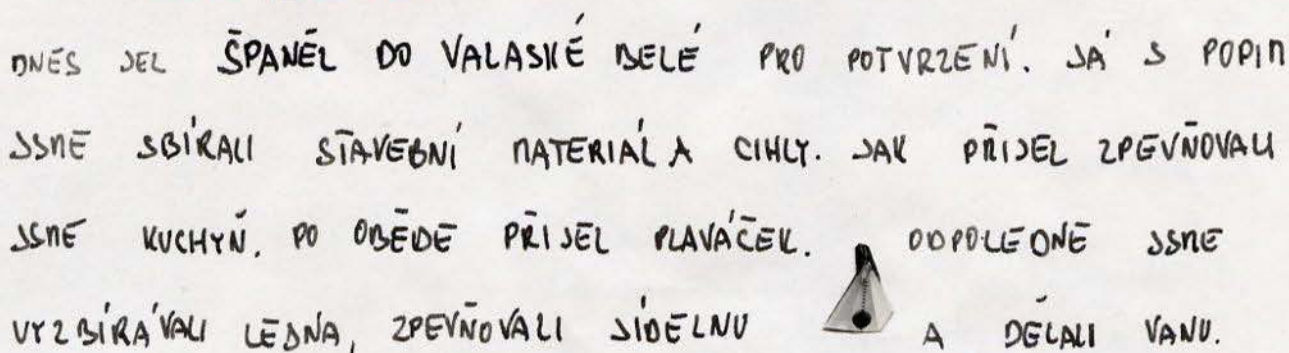 DNES JEL ŠPANĚL DO VALASKÉ BELÉ PRO POTVRZENÍ. JÁ S POPIM
JSME SBÍRALI STAVEBNÍ MATERIÁL A CIHLY. JAK PŘIJEL ZPEVŇOVALI
JSME KUCHYŇ. PO OBĚDE PŘIJEL PLAVÁČEK. ODPOLEDNE JSME
VYZBÍRÁVALI LEDNA, ZPEVŇOVALI JÍDELNU A DĚLALI VANU.